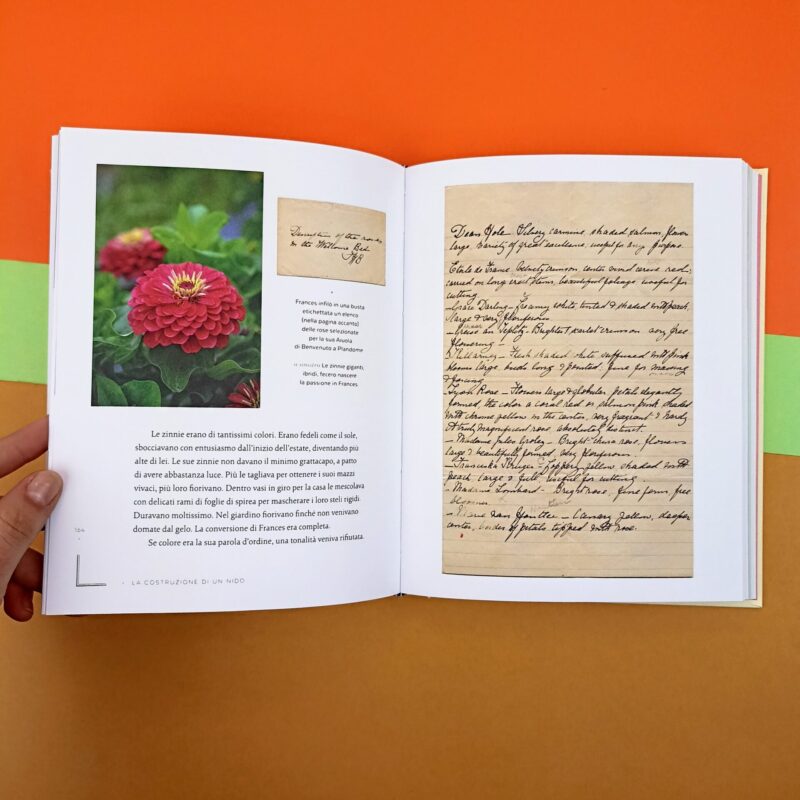 Description of the roses
in the Welcome Bed
FHB
Frances infilò in una busta
etichettata un elenco
(nella pagina accanto)
delle rose selezionate
per la sua Aiuola
di Benvenuto a Plandome
Le zinnie giganti,
ibridi, fecero nascere
la passione in Frances.
Le zinnie erano di tantissimi colori. Erano fedeli come il sole,
sbocciavano con entusiasmo dall'inizio dell'estate, diventando più
alte di lei. Le sue zinnie non davano il minimo grattacapo, a patto
di avere abbastanza luce. Più le tagliava per ottenere i suoi mazzi
vivaci, più loro fiorivano. Dentro vasi in giro per la casa le mescolava
con delicati rami di foglie di spirea per mascherare i loro steli rigidi.
Duravano moltissimo. Nel giardino fiorivano finché non venivano
domate dal gelo. La conversione di Frances era completa.
Se colore era la sua parola d'ordine, una tonalità veniva rifiutata.
LA COSTRUZIONE DI UN NIDO
Dean Hole Silvery carmine, shaded salmon, flower
large, variety of great excellence, useful for any purpose.
Etoile de France, Velvety crimson center vivid cerise red;
carried on long erect stems, beautiful foliage, useful for
cutting
Grace Darling – Creamy white tinted & shaded with peach,
large & very floriferous
Brightest scarlet crimson very free
flowering!
Killarney – Flesh shaded white suffused with pink
blooms large, buds long & pointed. fine for massing
& forcing
Lyon Rose – Flowers large & globular petals elegantly
formed, the color a coral red or salmon pink shaded
with chrome yellow in the center, very fragrant & hardy
A truly magnificent rose absolutely distinct.
– Madame Jules Grolez – Bright china rose, flowers
large & beautifully formed very floriferous.
– Franciska Kruger – Coppery yellow shaded with
peach large & full, useful for cutting
– Madame Lombard – Bright rose, fine form, free
bloomer
– Canary yellow, deeper
center, border of petals tipped with rose.